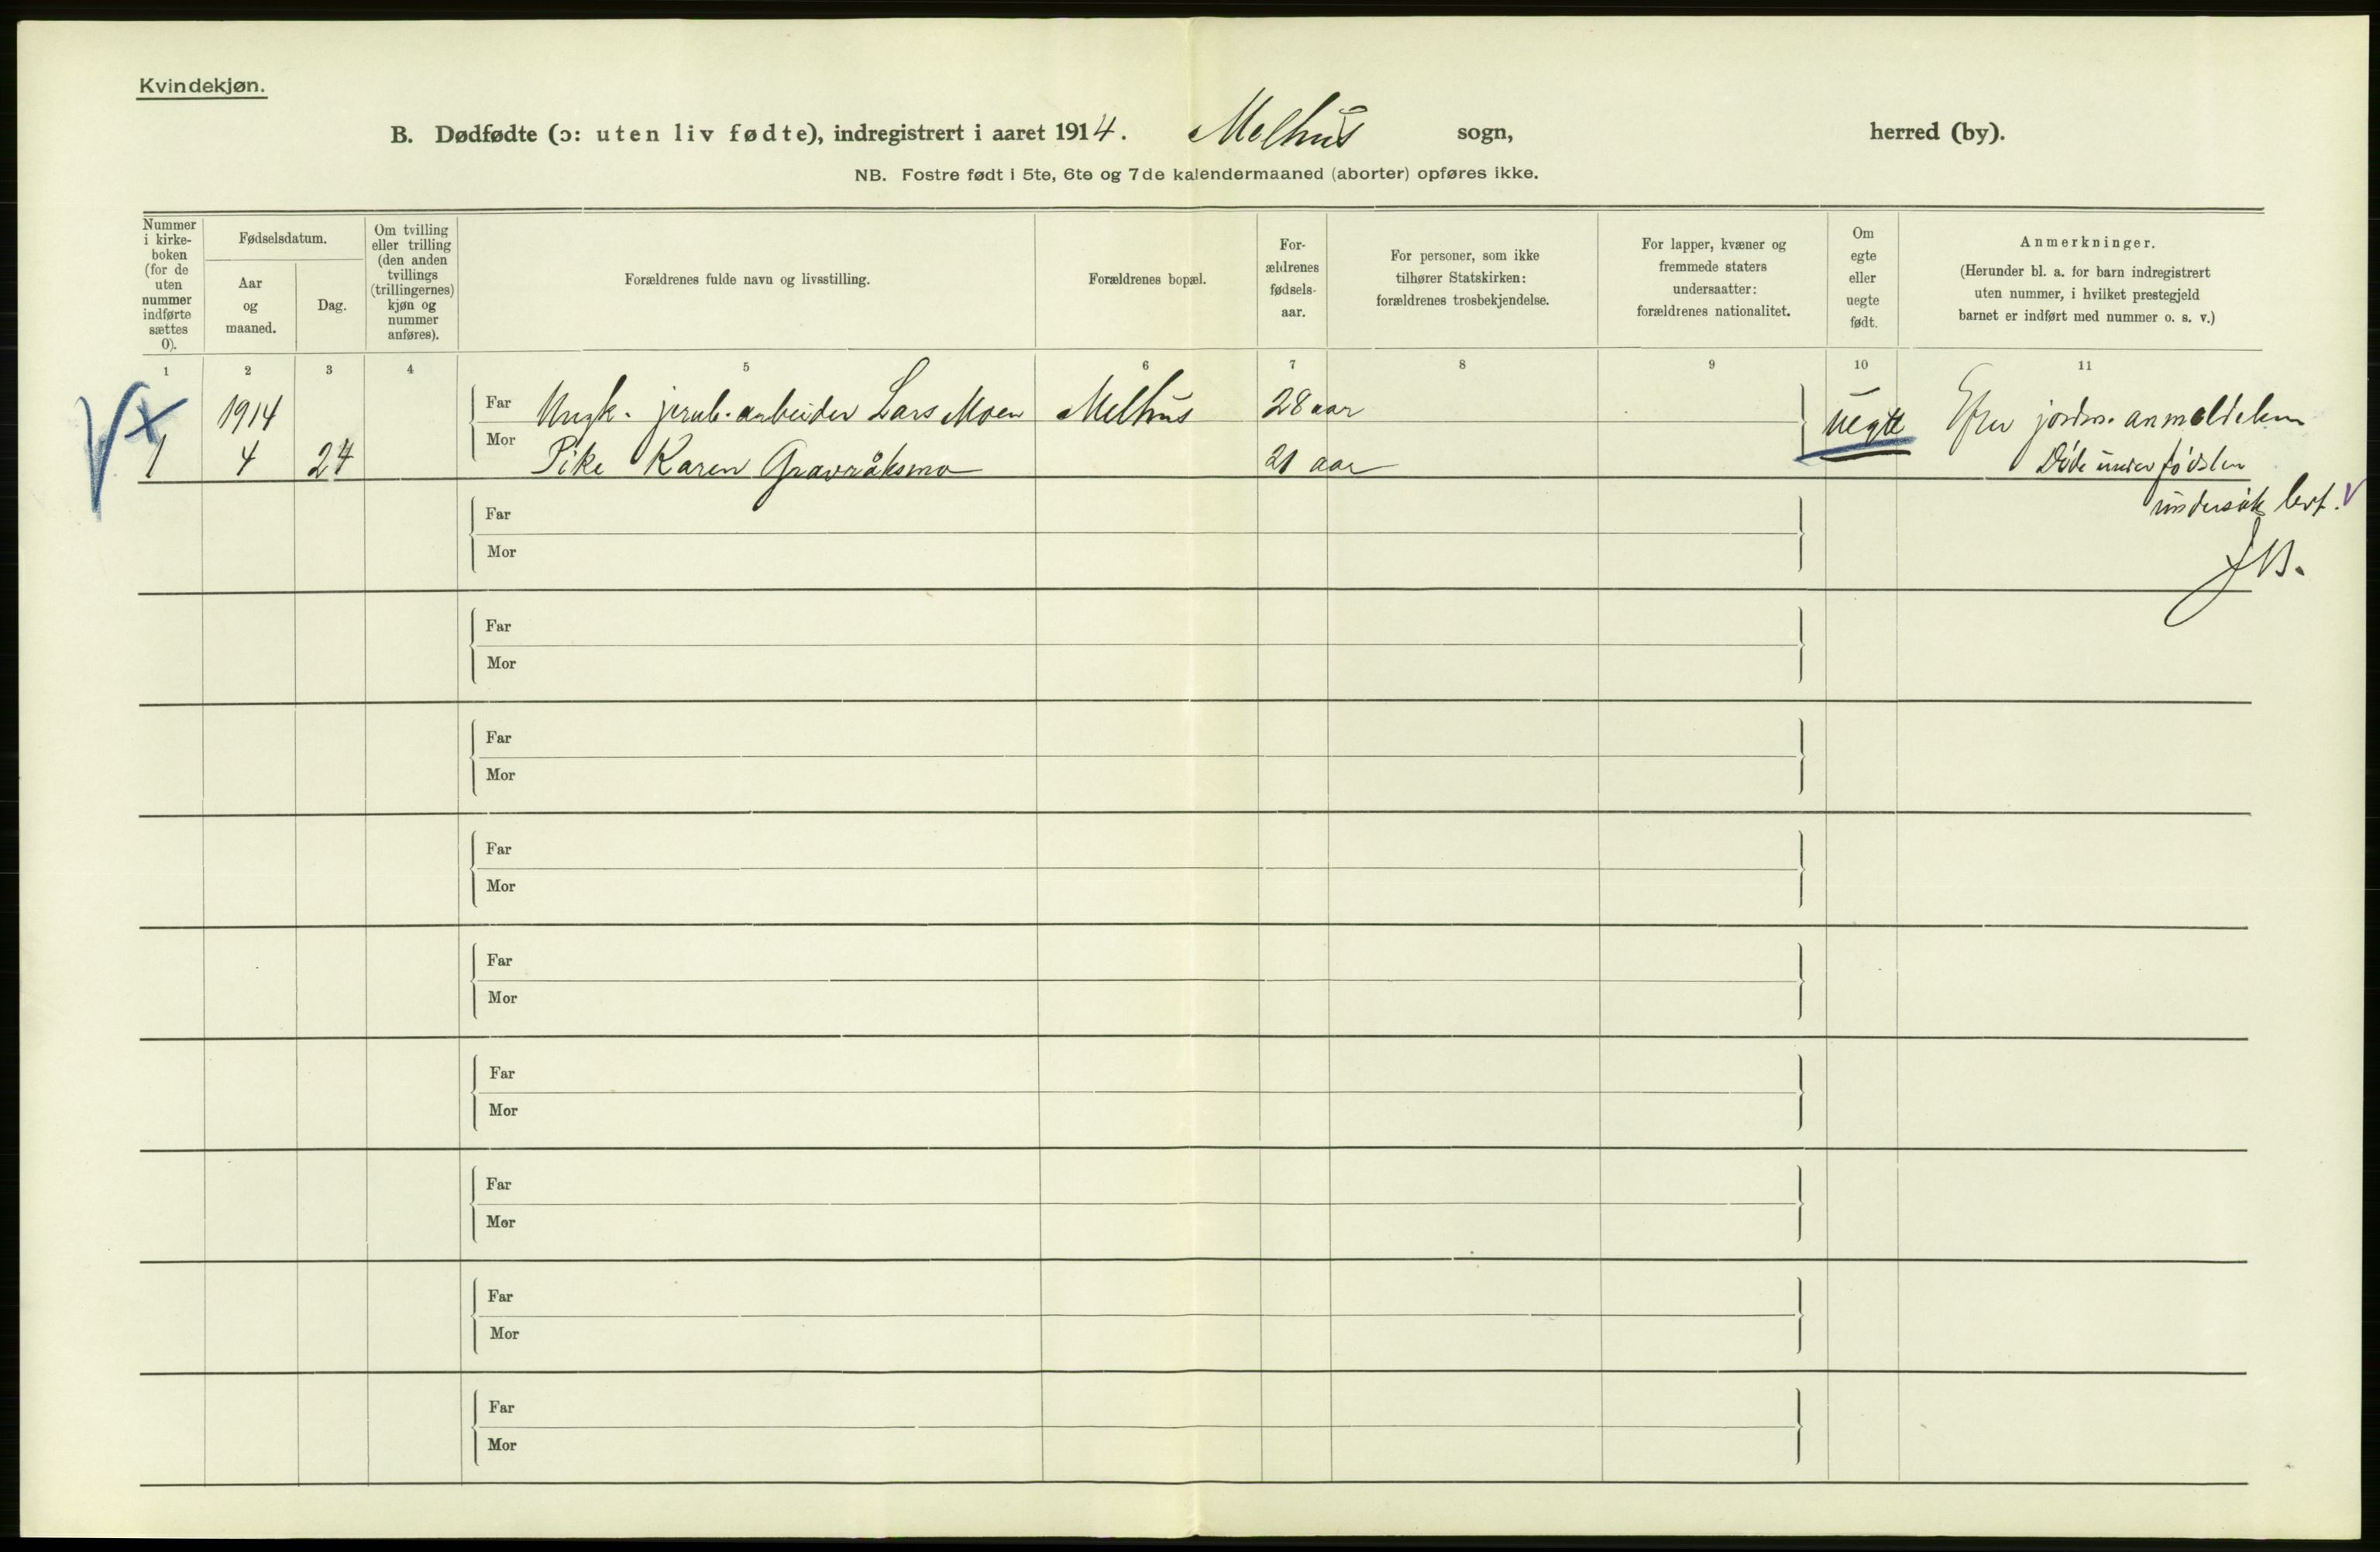 Kvindekjøn.
B. Dødfødte (ɔ: uten liv fødte), indregistrert i aaret 1914. Melhus sogn, herred (by).
NB. Fostre født i 5te, 6te og 7de kalendermaaned (aborter) opføres ikke.
Nummer
i kirke-
boken
(for de
uten
nummer
indførte
sættes
0).
Fødselsdatum.
Aar
og
maaned.
Dag.
Om tvilling
eller trilling
(den anden
tvillings
(trillingernes)
kjøn og
nummer
anføres).
Forældrenes fulde navn og livsstilling.
Forældrenes bopæl.
For-
ældrenes
fødsels-
aar.
For personer, som ikke
tilhører Statskirken:
forældrenes trosbekjendelse.
For lapper, kvæner og
fremmede staters
undersaatter:
forældrenes nationalitet.
Om
egte
eller
uegte
født.
Anmerkninger.
(Herunder bl. a. for barn indregistrert
uten nummer, i hvilket prestegjeld
barnet er indført med nummer o. s. v.)
1 2 3 4 5 6 7 8 9 10 11
1914 Far Ungk. jernb. arbeider Lars Moen Melhus 28 aar uegte Efter jordm. anmeldelsen
1 4 24 Mor Pike Karen Gravråksmo 21 aar Døde under fødslen
undersøk V
Far
Mor
J B.
Far
Mor
Far
Mor
Far
Mor
Far
Mor
Far
Mor
Far
Mor
Far
Mor
Far
Mor